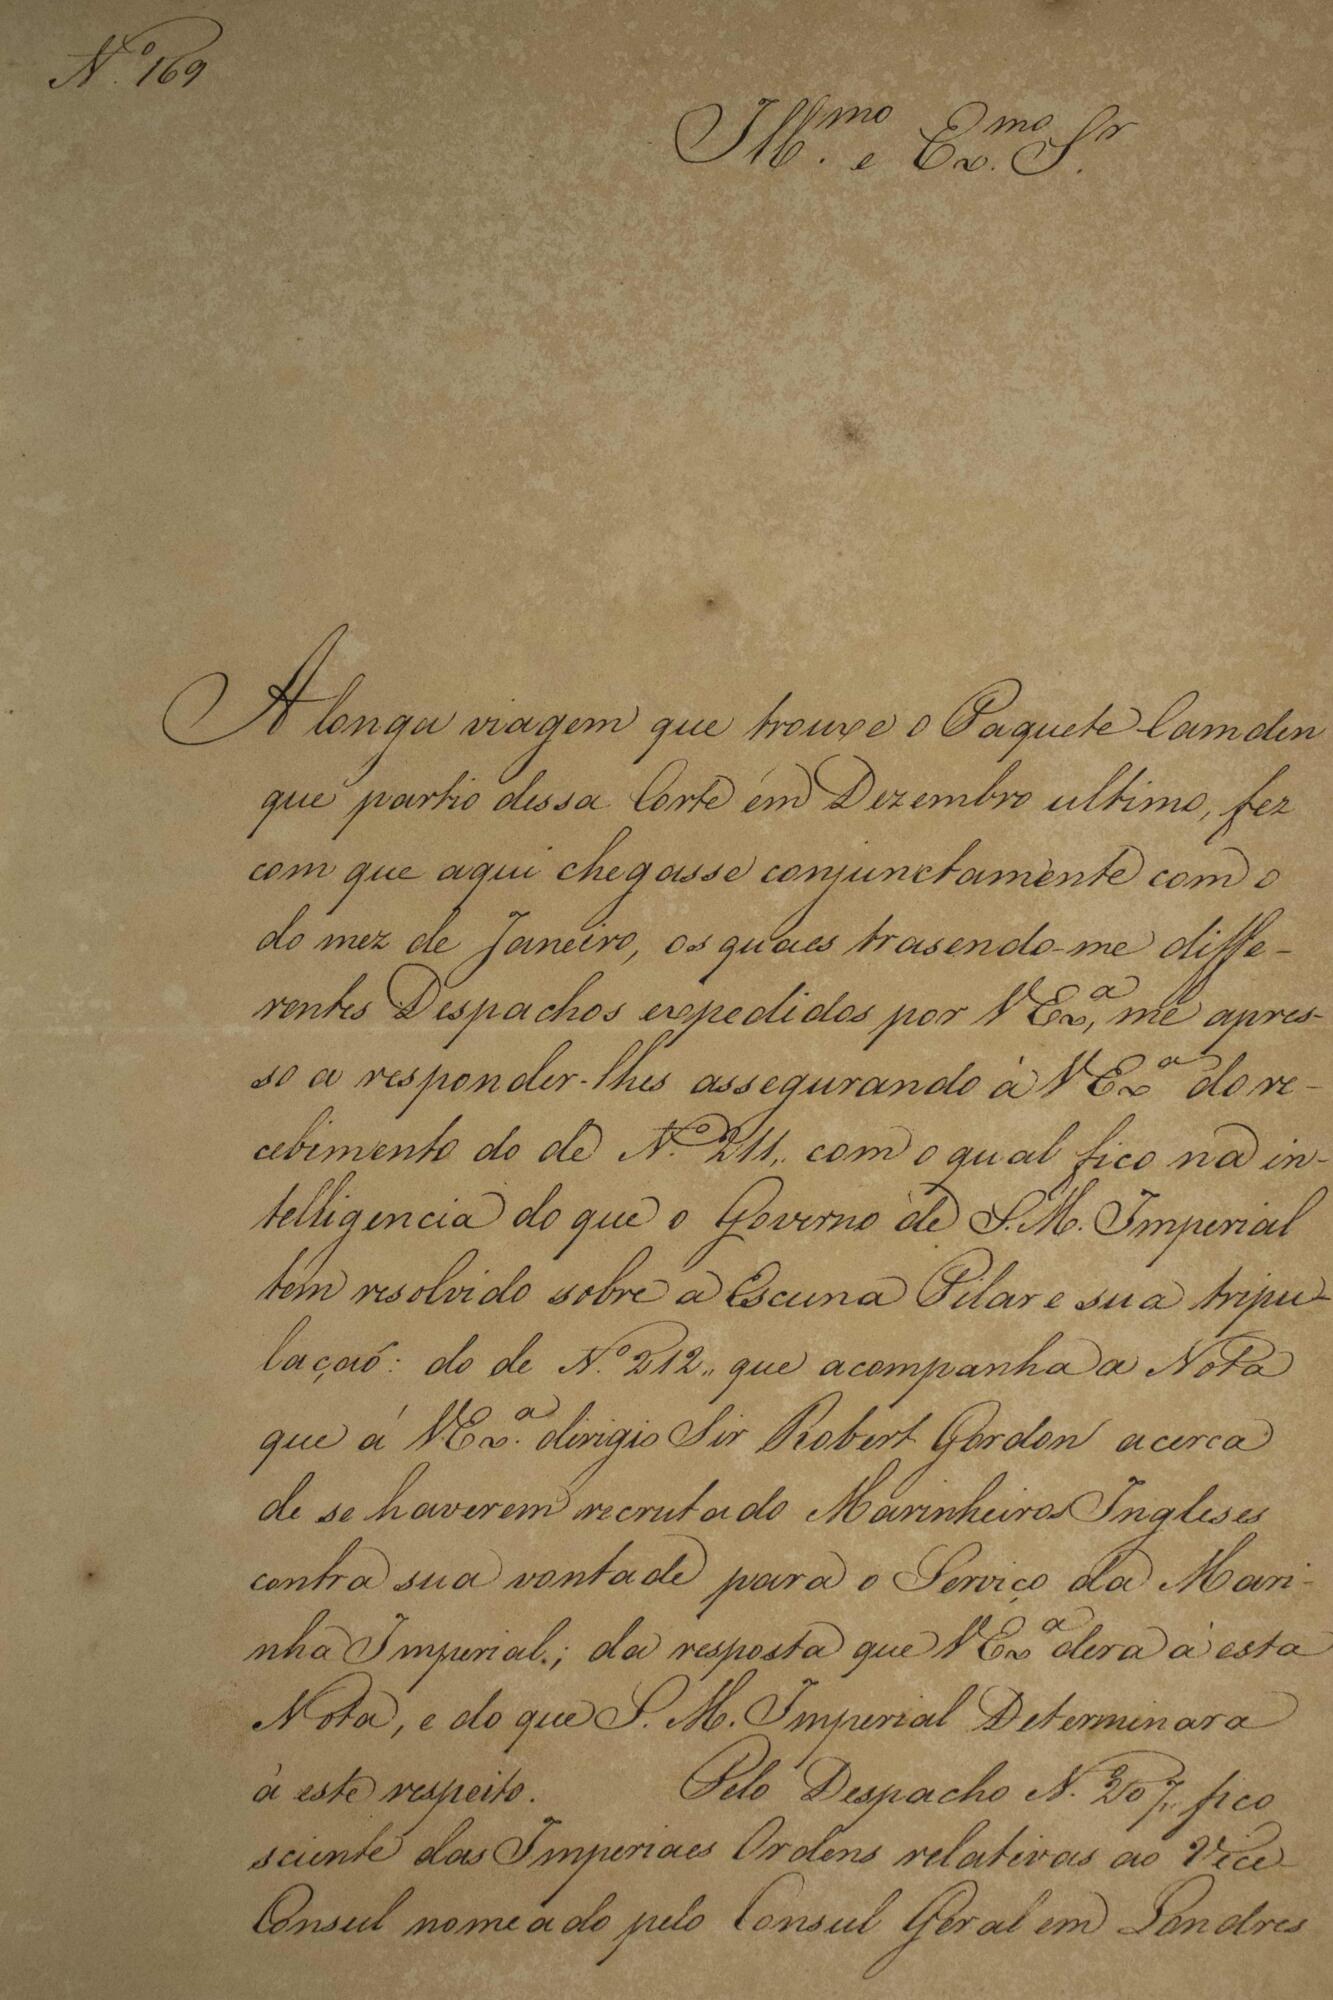 Nº. 169
Illmo. e Exmo. Sr.
A longa viagem que trouxe o Paquete Camden
que partio dessa Corte em Dezembro ultimo, fez
com que aqui chegasse conjunctamente com o
do mez de Janeiro, os quaes trasendo-me diffe-
rentes Despachos expedidos por VExa., me apres-
so a responder-lhes assegurando à VExa do re-
cebimento do de Nº. 211,, com o qual fico na in-
telligencia do que o Governo de S. M. Imperial
tem resolvido sobre a Escuna Pilar e sua tripu-
laçaõ: do de Nº. 212,, que acompanha a Nota
que á VExa. dirigio Sir Robert Gordon acerca
de se haverem recrutado Marinheiros Ingleses
contra sua vontade para o Serviço da Mari-
nha Imperial; da resposta que VExa dera à esta
Nota, e do que S. M. Imperial Determinara
à este respeito. Pelo Despacho Nº. 207,, fico
sciente das Imperiaes Ordens relativas ao Vice
Consul nomeado pelo Consul Geral em Londres